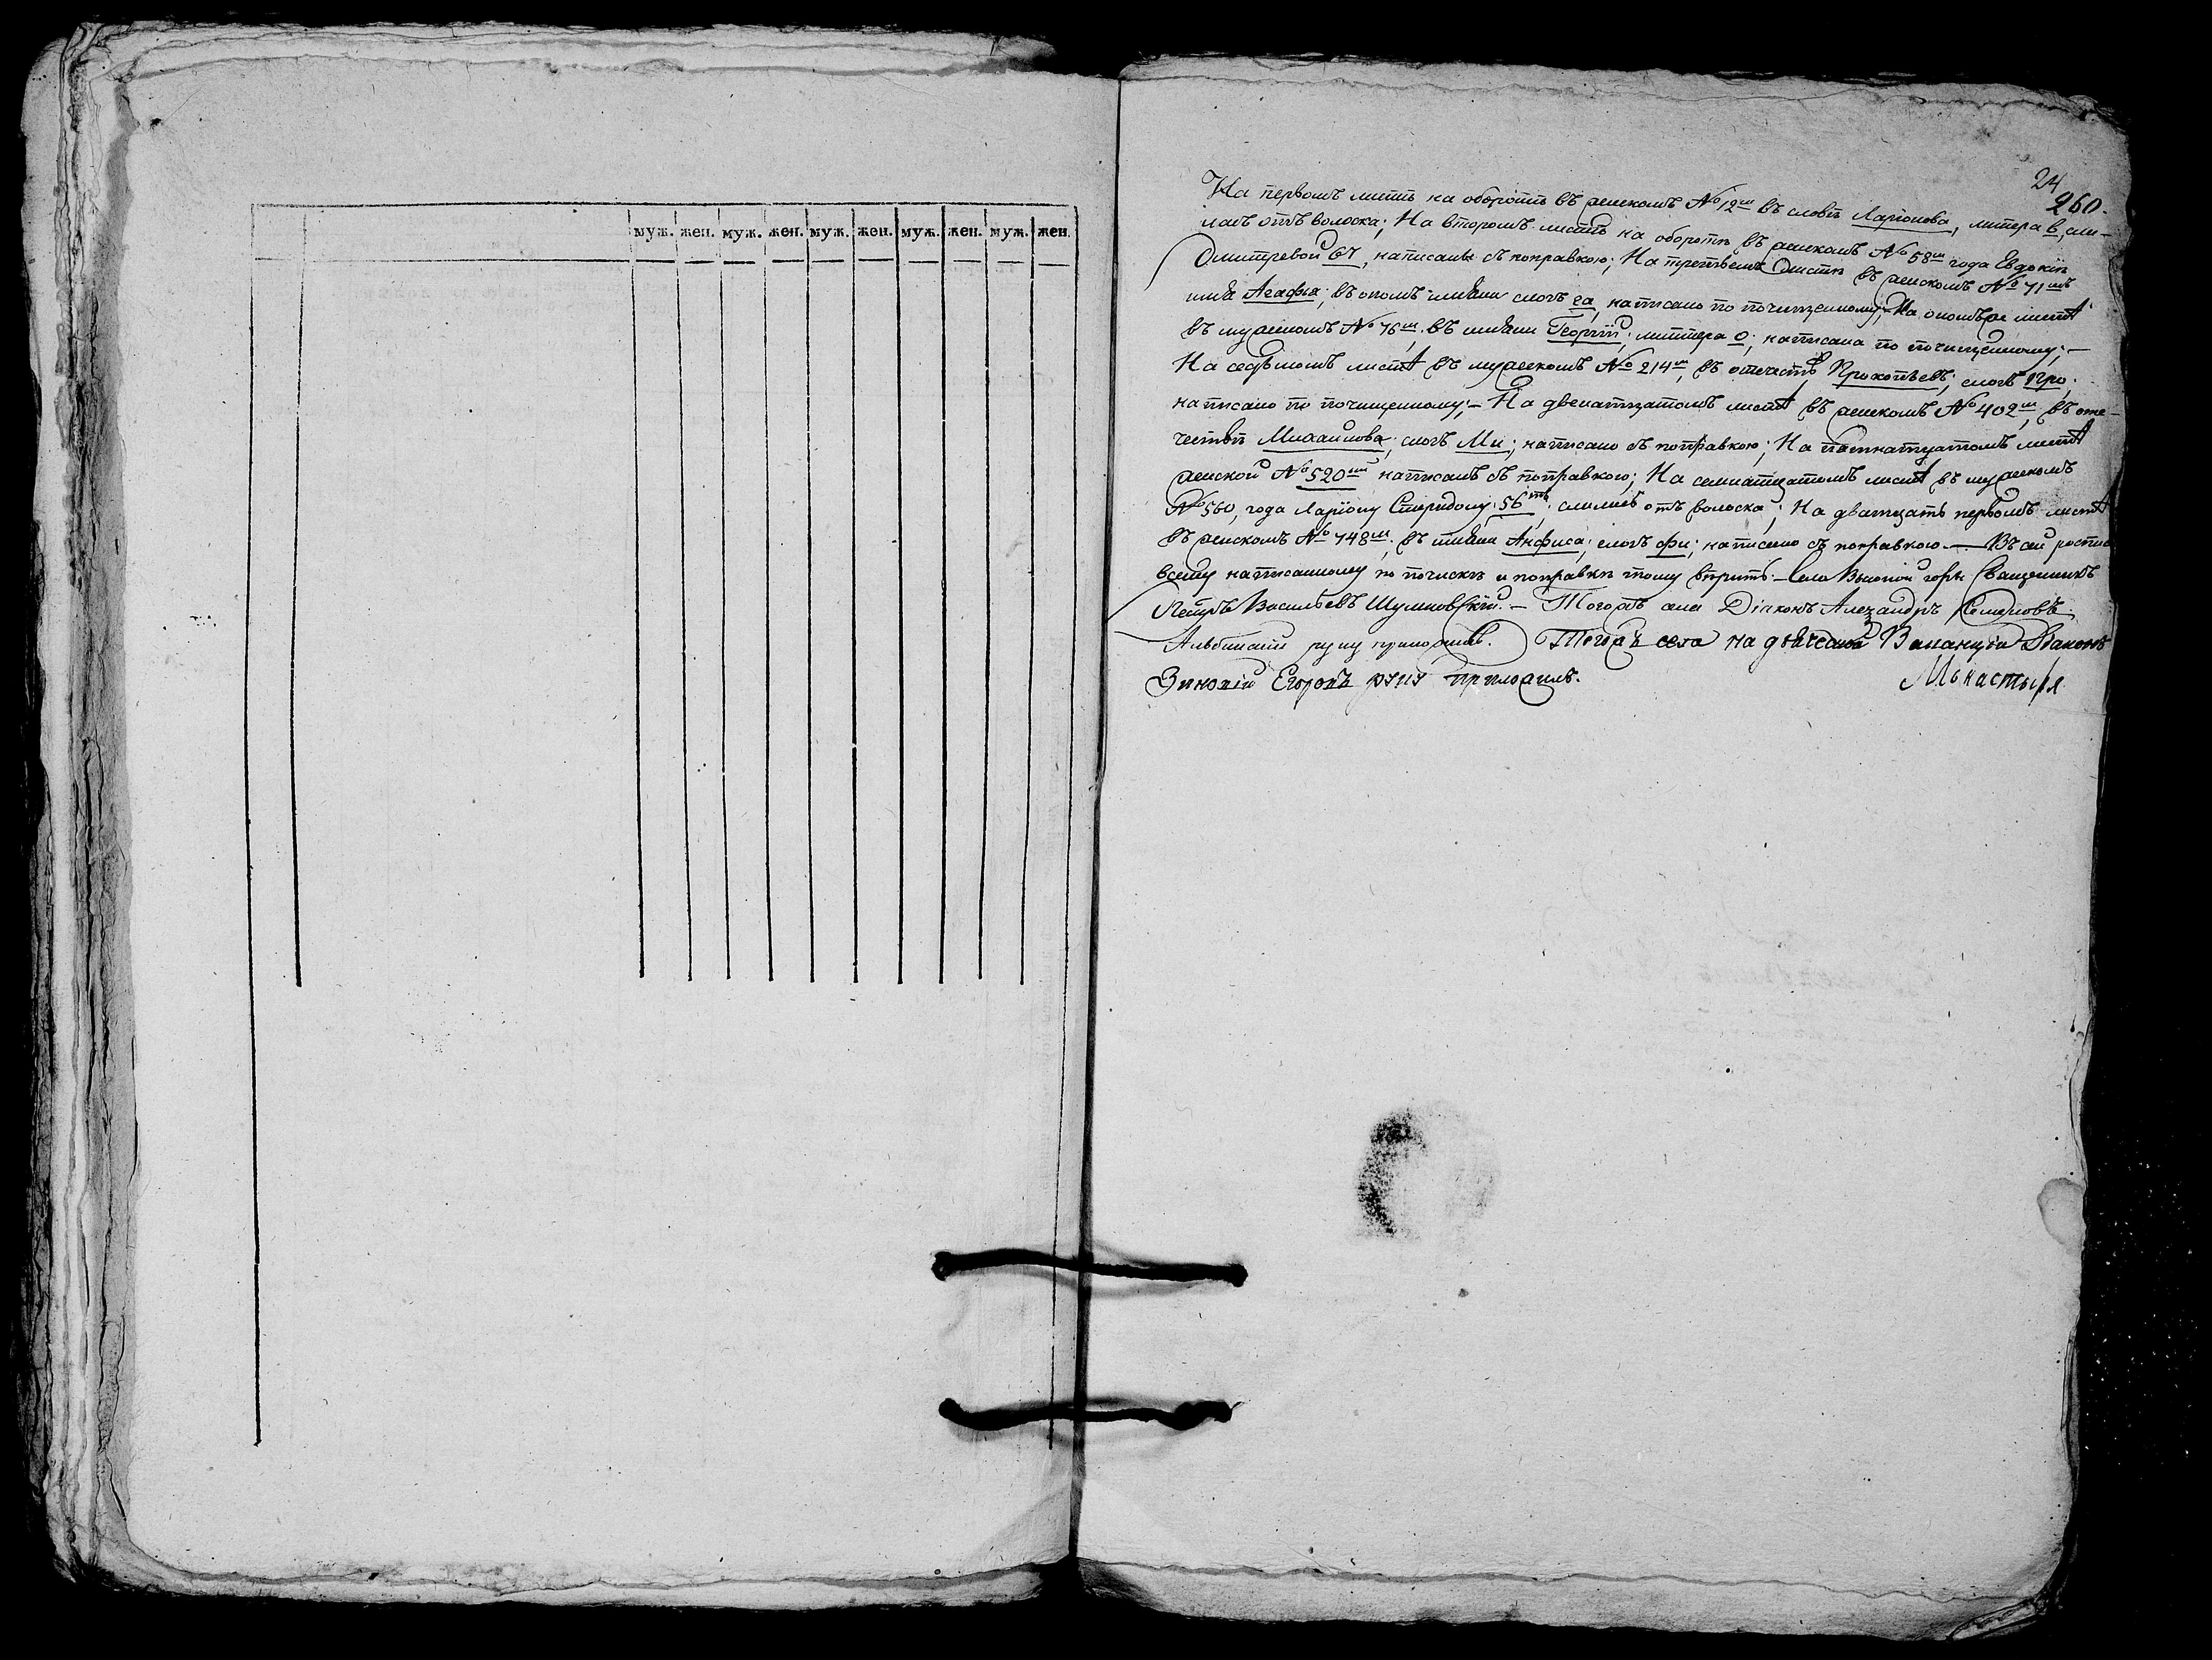 муж. жен. муж. жен. муж. жен. муж. жен. муж. жен.
24
260.
На первомъ листѣ на оборотѣ въ женскомъ № 12м въ словѣ Ларіонова, литера в, сли-
лась отъ волоска; На второмъ листѣ на оборотѣ въ женскомъ № 58м года Евдокіи
Дмитревой 67, написаны съ поправкою; На третьемъ листѣ въ женскомъ № 71мъ
имя Агафья; въ ономъ имѣни слогъ га, написано по почищенному; На ономъ же листѣ
въ мужеском № 76м. въ имѣни Георгій; литтера о; написана по почищенному;
На седьмомъ листѣ въ мужескомъ № 214м, въ отчествѣ Прокопьевъ; слогъ Про;
написано по почищенному;- На двенатцатомъ листѣ въ женскомъ № 402м, въ оте-
чествѣ Михаилова; слогъ Ми; написано съ поправкою; На пятнатцатомъ листѣ
женской № 520ый написанъ съ поправкою; На семнатцатомъ листѣ въ мужескомъ
№ 560, года Ларіону Спиридону 56ть, слились отъ волоска; На дватцать первомъ листѣ
въ женскомъ № 748м. въ имѣни Анфиса; слогъ фи; написано съ поправкою.— Въ сей роспис
всему написанному по почискѣ и поправкѣ тому вѣрить.- Села Высокой горы Священникъ
Петръ Васильевъ Шумновскій. — Тогожъ села Діаконъ Александръ Семеновъ
Альбинскій руку приложилъ. Тогожъ села на дьяческой Ваканціи Діаконъ
Зиновій Егоровъ руку приложилъ.
Мънастыря